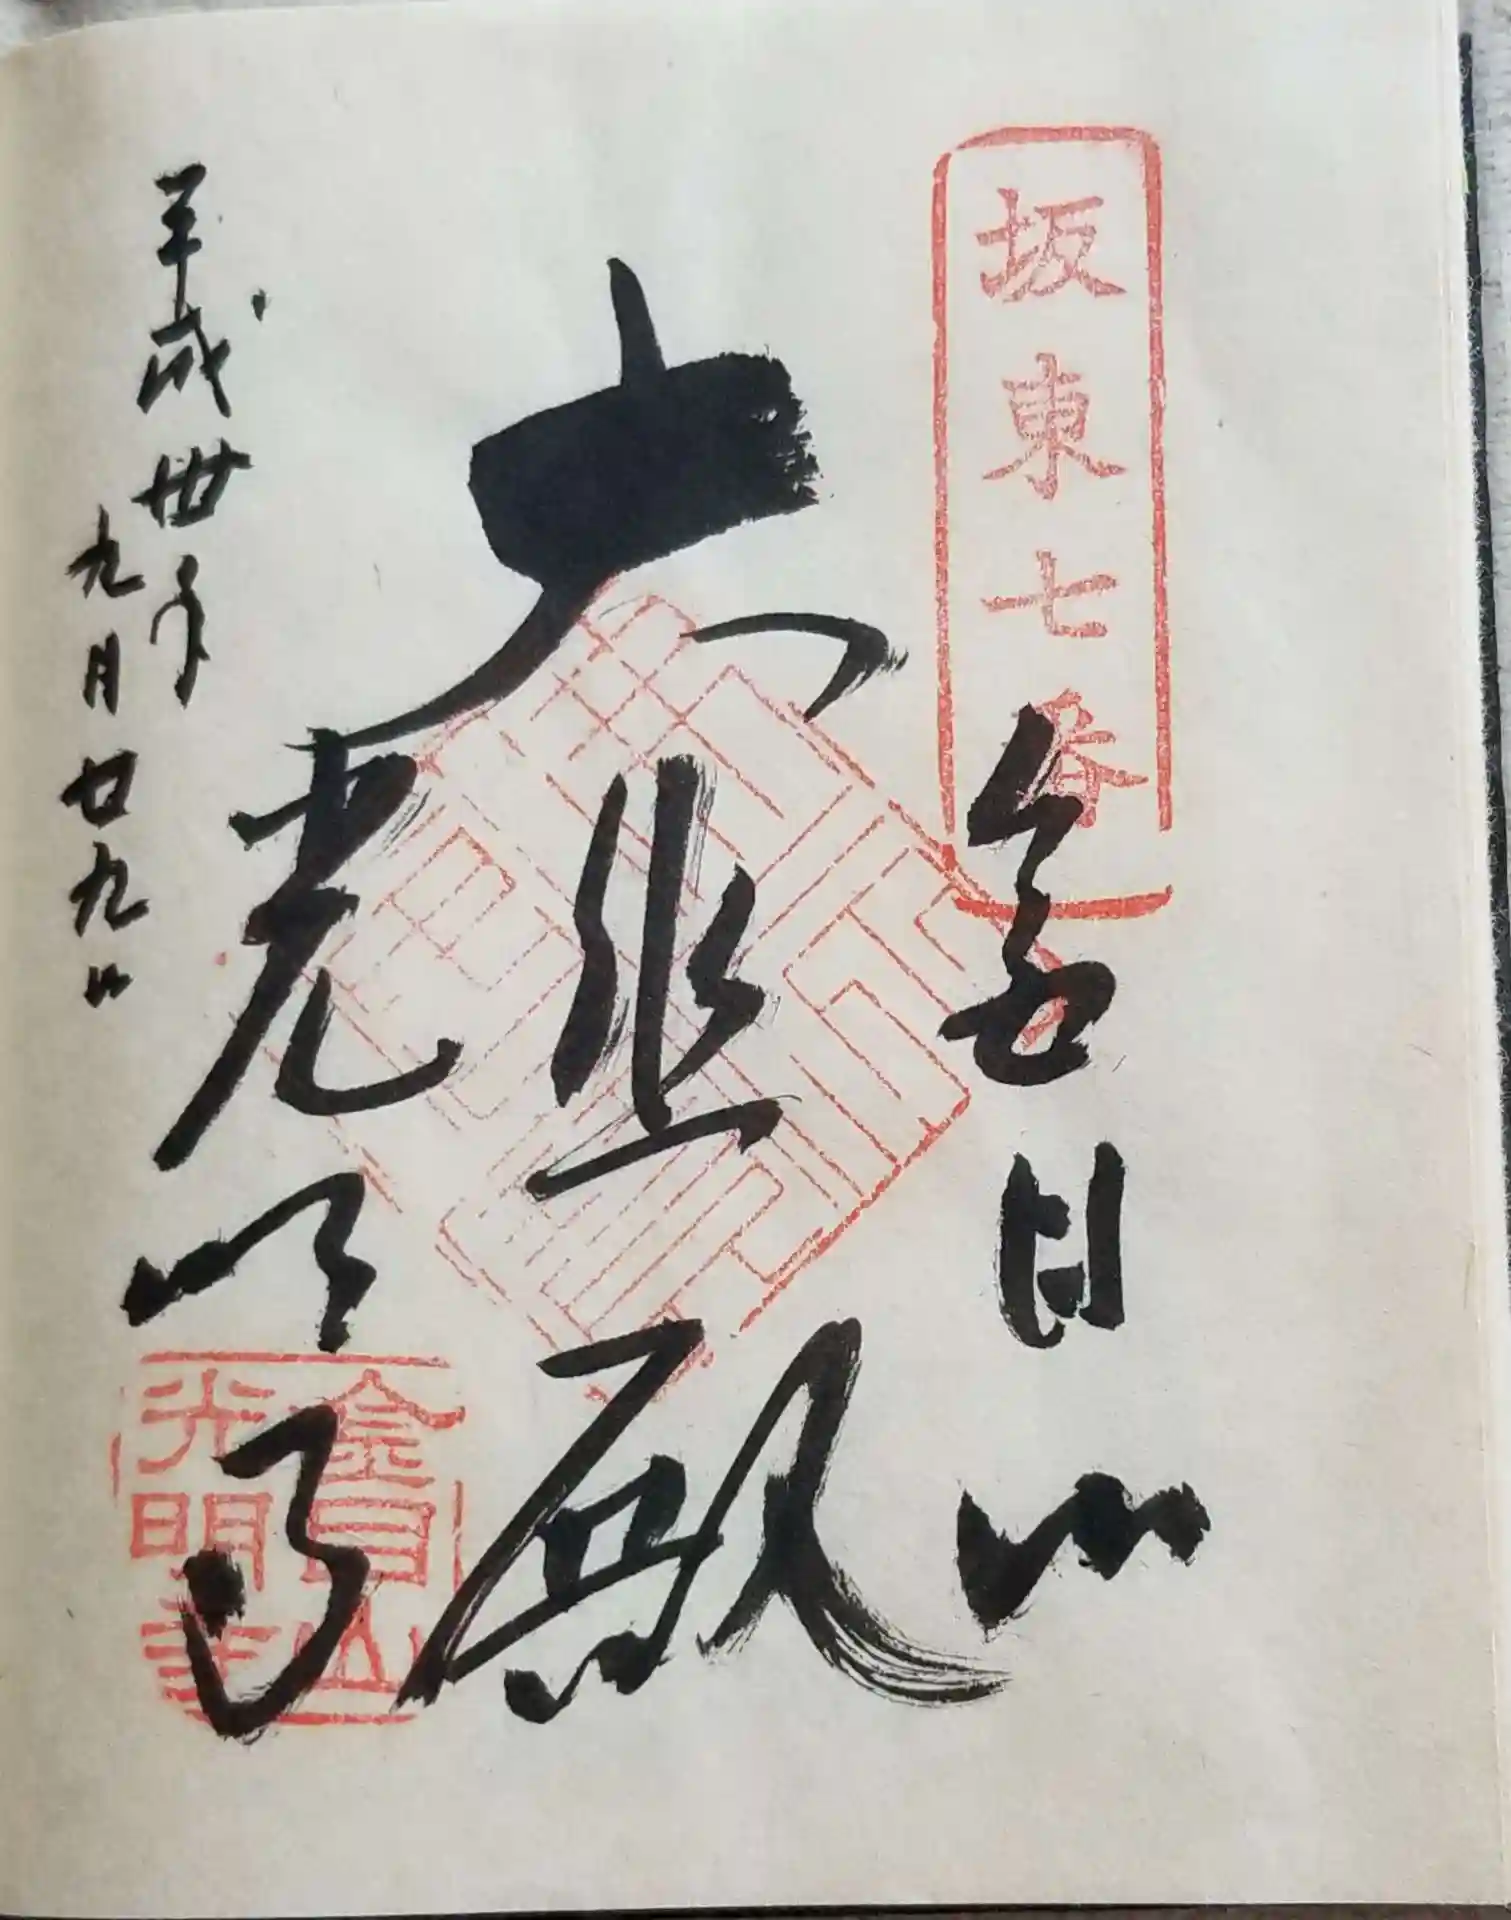 坂東七番
金目山
大悲殿
光明寺
平成卅年
九月廿九日
金目山
光明寺